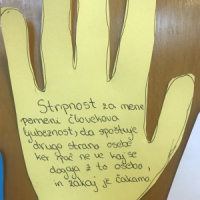 Strpnost za mene
pomeni človekova
ljubeznost, da spoštuje
drugo stran osebe
ker pač ne ve kaj se
dogaja z to osebo,
in zakaj je čakamo.